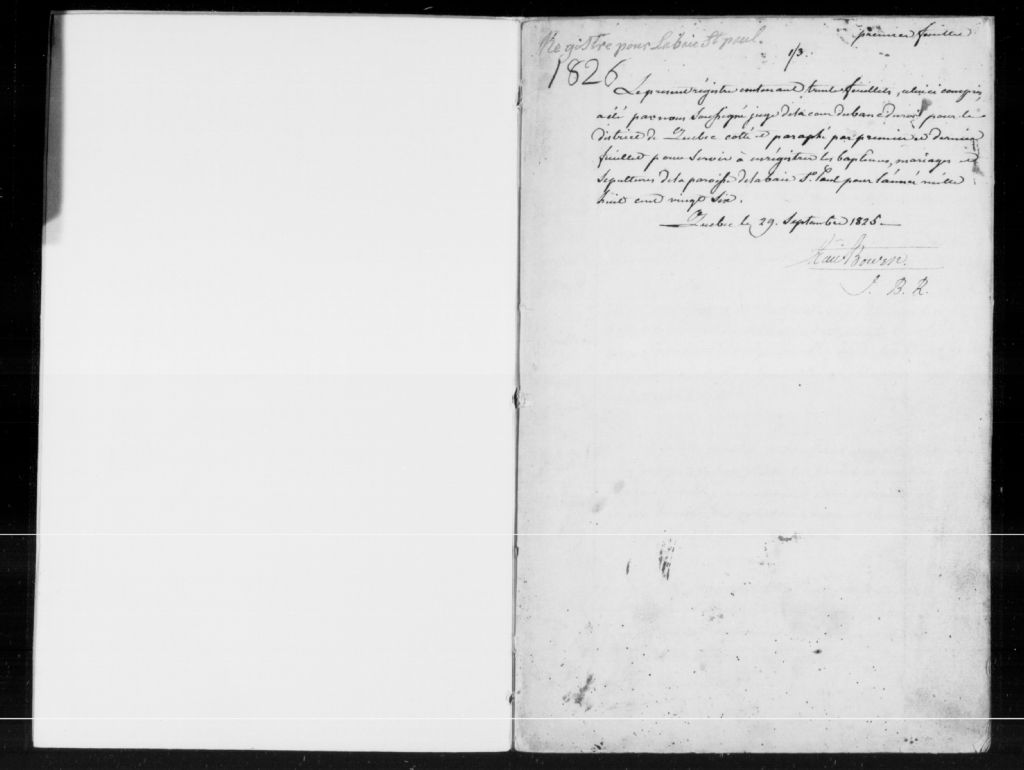 premier feuillet
Registre pour Labaie St paul.
1826
Le présent régistre contenant trente feuillets, celui ci compris,
a été par nous Soussigné juge de la cour du banc du roi pour le
district de Quebec coté et paraphé par premier et dernier
feuillet pour servir à enrégistrer les baptêmes, mariages et
Sepultures de la paroisse de la baie St. Paul pour l'année mille
huit cent vingt Six.
Quebec le 29. Septembre 1825.
Bowen.
J. B. R.